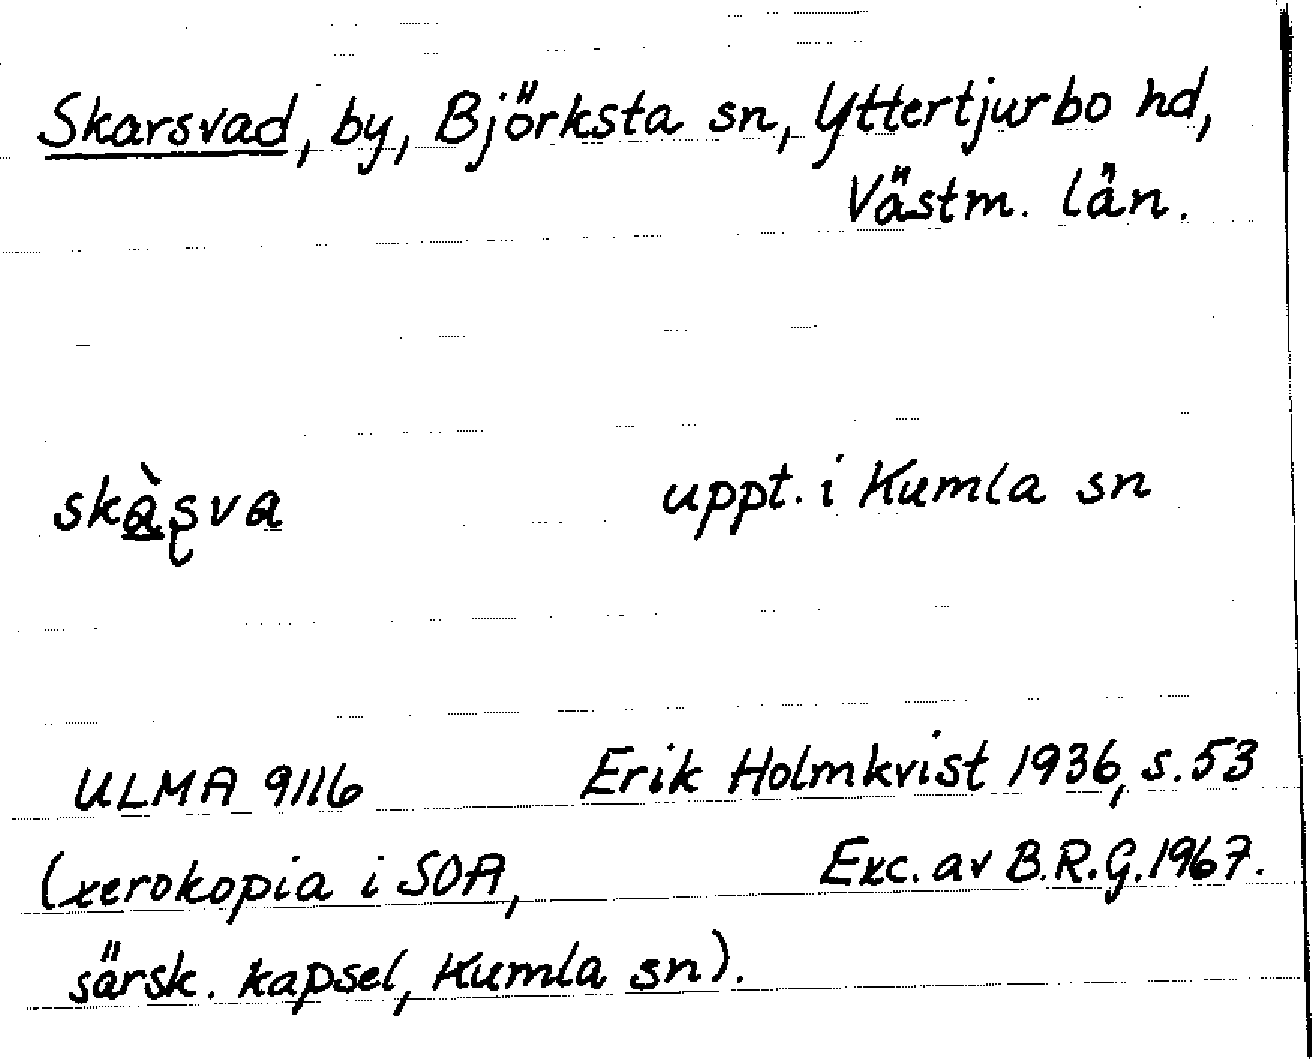 Skarsvad, by, Björksta sn, Yttertjurbo hd,
Västm. län.
skà̲ʂva uppt. i Kumla sn
ULMA 9116 Erik Holmkvist 1936, s. 53
(xerokopia i SOA, Exc. av B.R.G. 1967.
särsk. kapsel, Kumla sn).